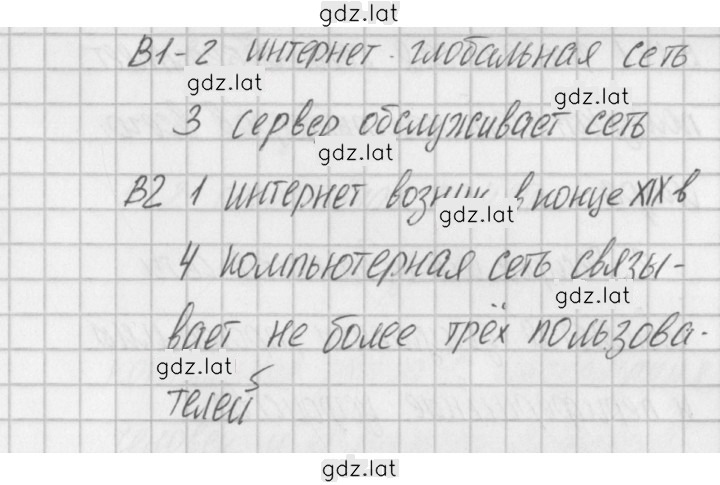 gdz.lat
В1-2 интернет глобальная сеть
gdz.lat
gdz.lat
3 сервер обслуживает сеть
gdz.lat
В2 1 интернет возник в конце XIX в
gdz.lat
4 компьютерная сеть связы-
gdz.lat
вает не более трёх пользова-
gdz.lat
телей
gdz.lat